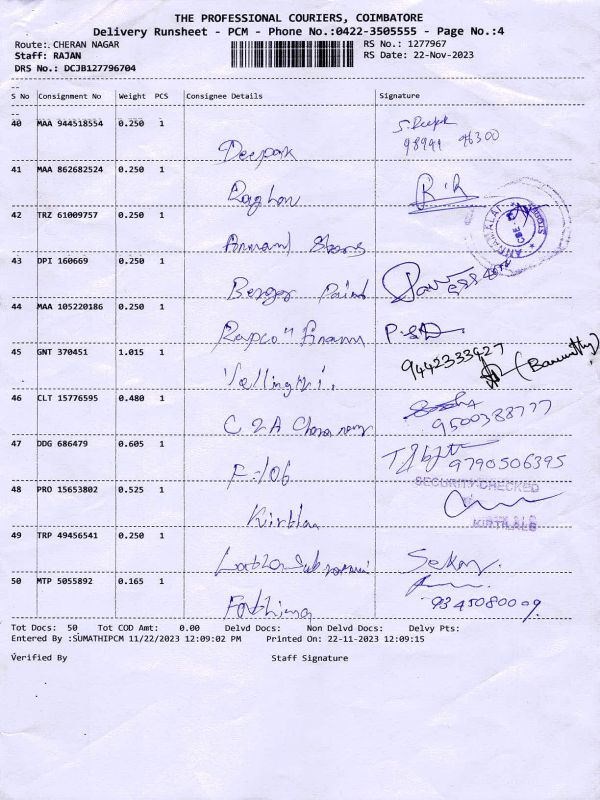 THE PROFESSIONAL COURIERS, COIMBATORE
Delivery Runsheet - PCM - Phone No.:0422-3505555 - Page No.:4
Route: CHERAN NAGAR RS No.: 1277967
Staff: RAJAN RS Date: 22-Nov-2023
DRS No.: DCJB127796704
S No Consignment No Weight PCS Consignee Details Signature
40 MAA 944518554 0.250 1 Deepak
41 MAA 862682524 0.250 1
42 TRZ 61009757 0.250 1
43 DPI 160669 0.250 1 Berger Paint
44 MAA 105220186 0.250 1
9442333427
45 GNT 370451 1.015 1
46 CLT 15776595 0.480 1
9500388777
47 DDG 686479 0.605 1 F-106 9790506395
SECURITY CHECKED
48 PRO 15653802 0.525 1
KIRTILALS
49 TRP 49456541 0.250 1 Sekar
50 MTP 5055892 0.165 1 Fathima 9345080009
Tot Docs: 50 Tot COD Amt: 0.00 Delvd Docs: Non Delvd Docs: Delvy Pts:
Entered By :SUMATHIPCM 11/22/2023 12:09:02 PM Printed On: 22-11-2023 12:09:15
Verified By Staff Signature